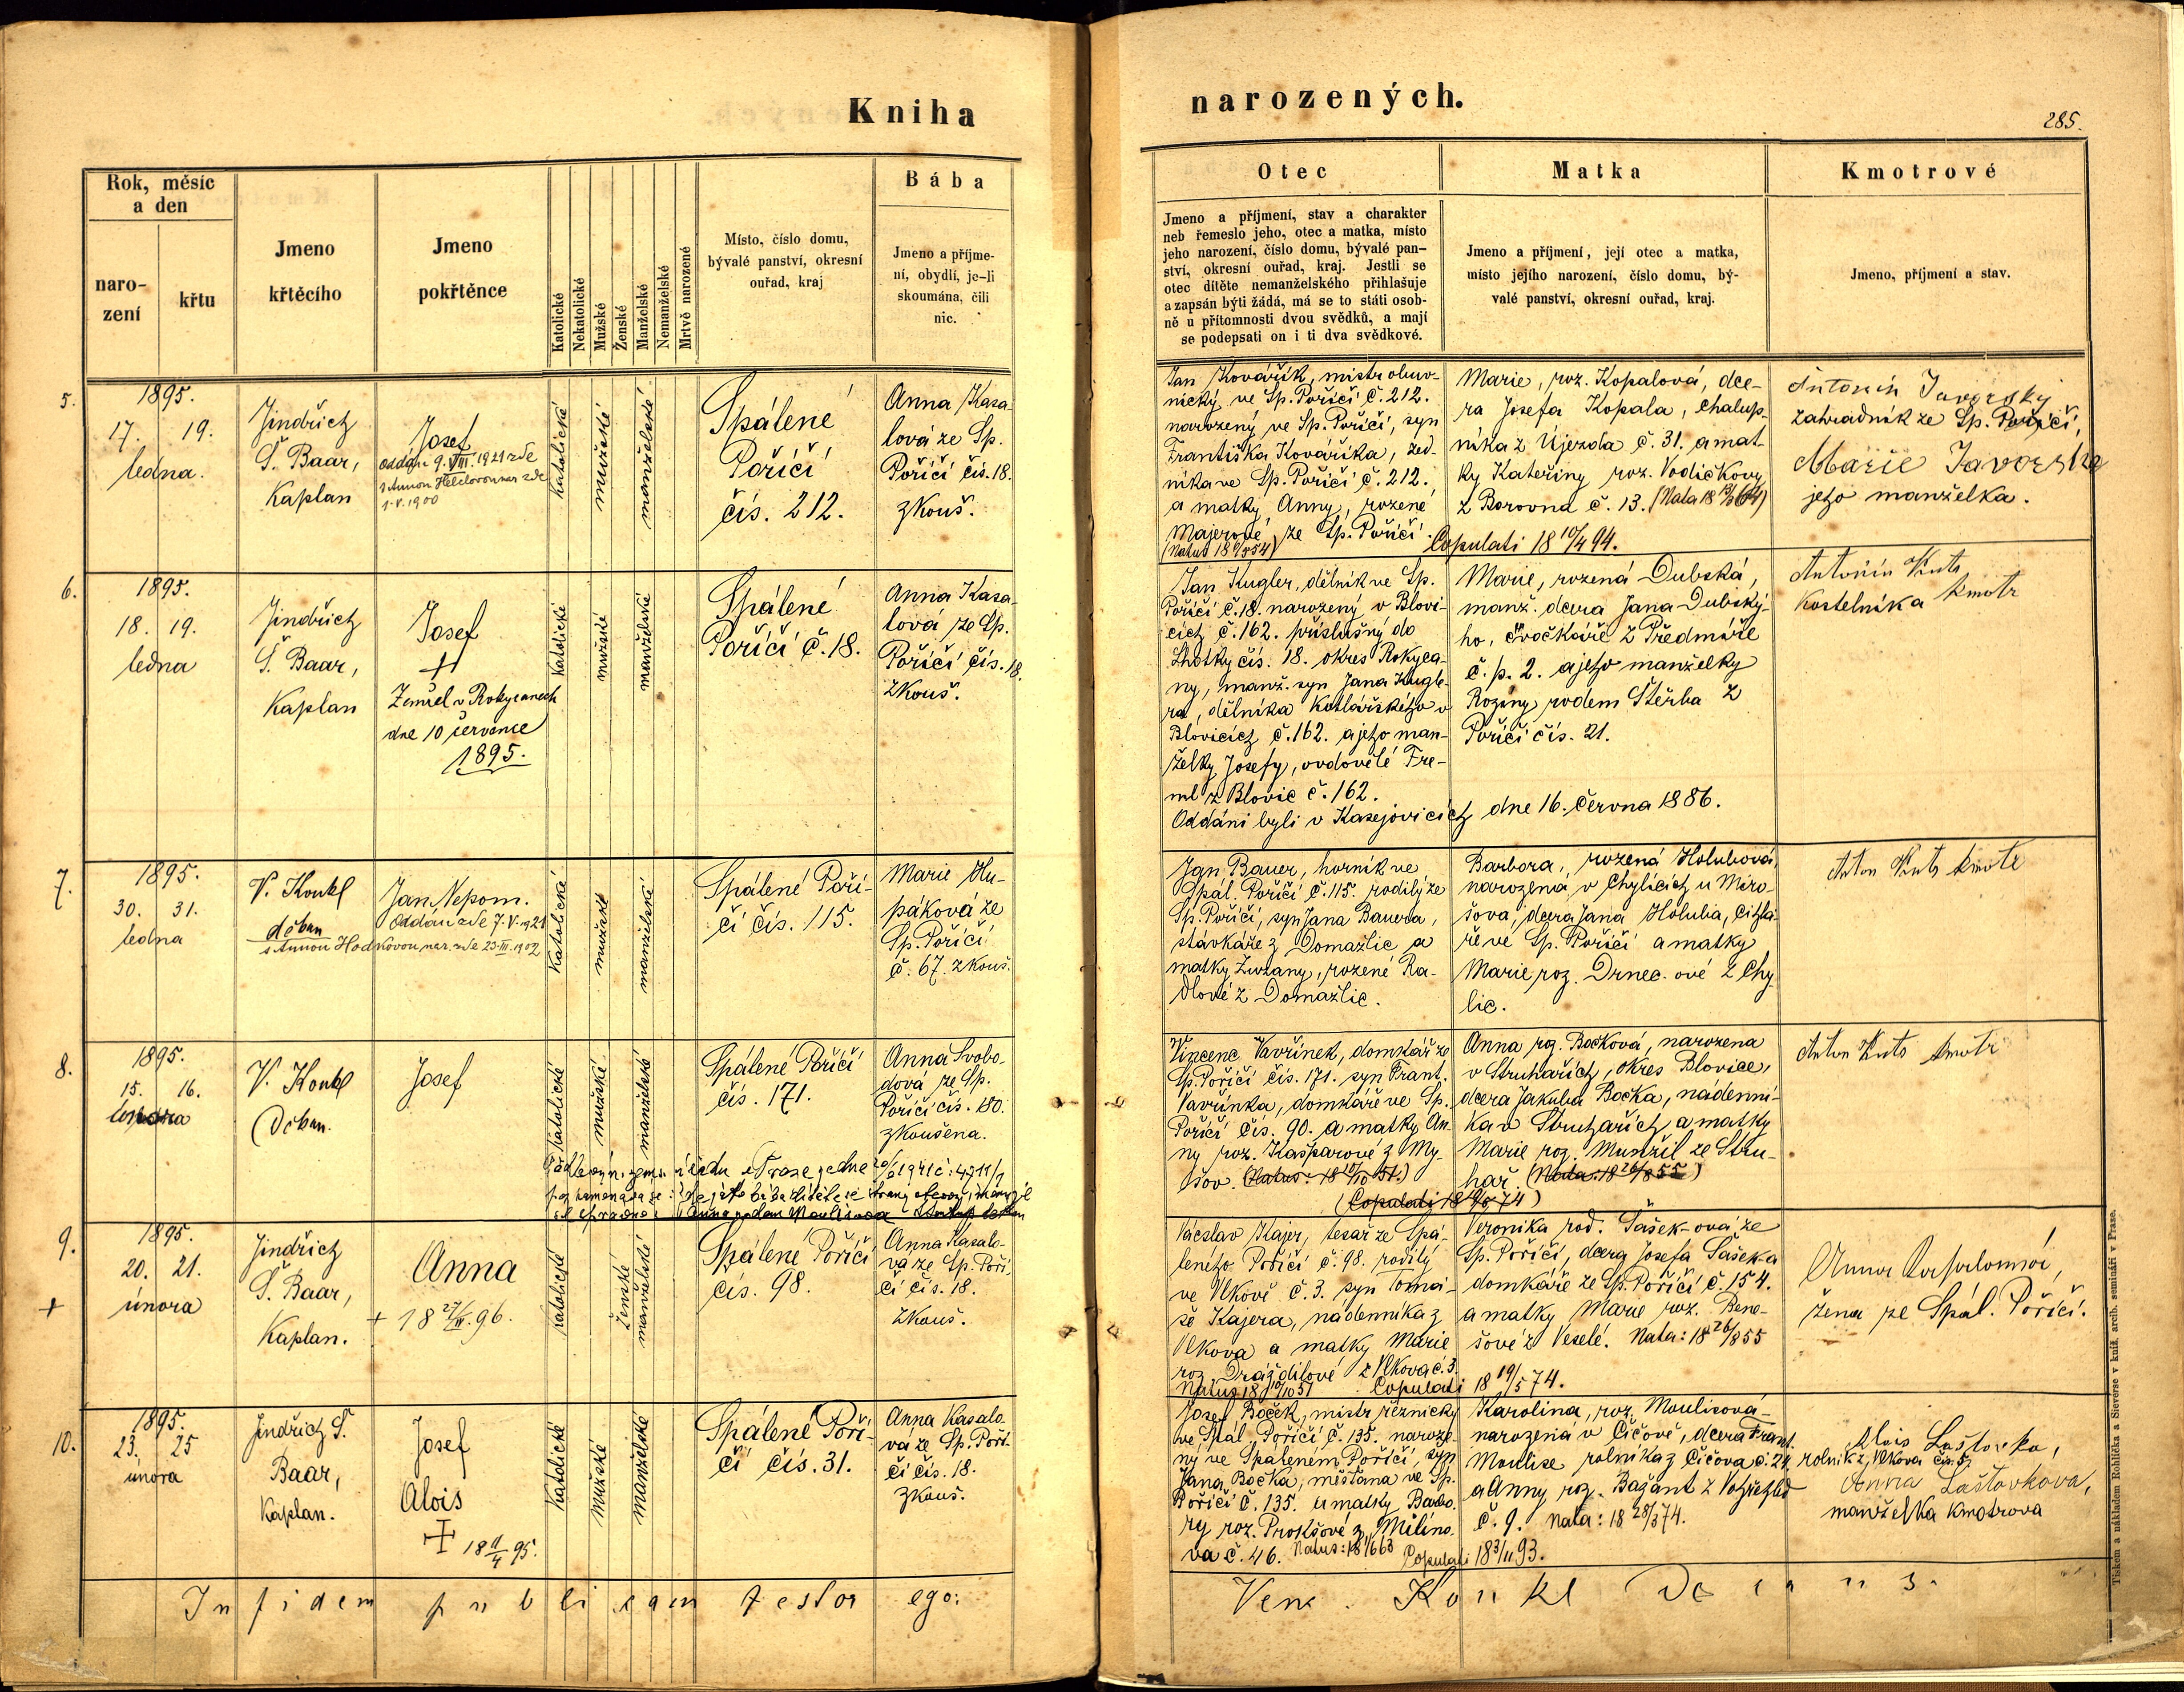 Kniha
narozených.
285.
Rok, měsíc
a den
naro-
zení
křtu
Jmeno
křtěcího
Jmeno
pokřtěnce
Katolické
Nekatolické
Mužské
Ženské
Manželské
Nemanželské
Mrtvě narozené
Místo, číslo domu,
bývalé panství, okresní
ouřad, kraj
Bába
Jmeno a příjme-
ní, obydlí, je-li
skoumána, čili
nic.
Otec
Jmeno a příjmení, stav a charakter
neb řemeslo jeho, otec a matka, místo
jeho narození, číslo domu, bývalé pan-
ství, okresní ouřad, kraj. Jestli se
otec dítěte nemanželského přihlašuje
a zapsán býti žádá, má se to státi osob-
ně u přítomnosti dvou svědků, a mají
se podepsati on i ti dva svědkové.
Matka
Jmeno a příjmení, její otec a matka,
místo jejího narození, číslo domu, bý-
valé panství, okresní ouřad, kraj.
Kmotrové
Jmeno, příjmení a stav.
5.
1895.
17. 19.
ledna.
Jindřich
Š. Baar,
Kaplan
Josef
oddán 9. VIII. 1921 zde
s Annou
1.V.1900
Katolické
mužské
manželské
Spálené
Poříčí
čís. 212.
Anna Kasa-
lová ze Sp.
Poříčí čís. 18.
zkouš.
Jan Kovářík, mistr obuv-
nický ve Sp. Poříčí č. 212.
narozený ve Sp. Poříčí, syn
Františka Kováříka, zed-
níka ve Sp. Poříčí č. 212.
a matky Anny, rozené
Majerové, ze Sp. Poříčí.
Marie, roz. Kopalová, dce-
ra Josefa Kopala, chalup-
níka z Újezda č. 31. a mat-
ky Kateřiny roz. Vodičkovy
z Borovna č. 13.
Copulati 18 10/4 94.
Antonín Javorský
zahradník ze Sp. Poříčí,
Marie Javorská
jeho manželka.
6.
1895.
18. 19.
ledna
Jindřich
Š. Baar,
Kaplan
Josef
+
Zemřel v Rokycanech
dne 10 července
1895.
Katolické
mužské
manželské
Spálené
Poříčí č. 18.
Anna Kasa-
lová ze Sp.
Poříčí čís. 18.
zkouš.
Jan Kugler, dělník ve Sp.
Poříčí č. 18. narozený v Blovi-
cích č. 162. příslušný do
Lhotky čís. 18. okres Rokyca-
ny, manž. syn Jana Kugle-
ra, dělníka kotlářského v
Blovicích č. 162. a jeho man-
želky Josefy, ovdovělé Fre-
ml z Blovic č. 162.
Oddáni byli v Kasejovicích dne 16. června 1886.
Marie, rozená Dubská,
manž. dcera Jana Dubský-
ho, cvočkáře z Předmíře
č. p. 2. a jeho manželky
Roziny rodem Štěrba z
Poříčí čís. 21.
Antonín Kuts
Kostelníka kmotr
7.
1895.
30. 31.
ledna
V. Koukl
děkan
Jan Nepom.
Oddán zde 7.V.1921
s Annou Hodkovou, nar. zde 23.III.1902
Katolické
mužské
manželské
Spálené Poří-
čí čís. 115.
Marie Hu-
páková ze
Sp. Poříčí
č. 67. zkouš.
Jan Bauer, horník ve
Spál. Poříčí č. 115. rodilý ze
Sp. Poříčí, syn Jana Bauera,
stávkáře z Domažlic a
matky Zuzany, rozené Ra-
dlové z Domažlic.
Barbora, rozená Holubová,
narozená v Chylicích u Miro-
šova, dcera Jana Holuba, cihlá-
ře ve Sp. Poříčí a matky
Marie roz. Drnec-ové z Chy-
lic.
Anton Kuts kmotr
8.
1895.
15. 16.
února
V. Koukl
Děkan.
Josef
Katolické
mužské
manželské
Spálené Poříčí
čís. 171.
Anna Svobo-
dová ze Sp.
Poříčí čís. 180.
zkoušena.
Vincenc Vavřínek, domkář ze
Sp. Poříčí čís. 171. syn Frant.
Vavřínka, domkáře ve Sp.
Poříčí čís. 90. a matky An-
ny roz. Kašparové z My-
šov. (Natus: 18 10/10 51.)
Anna roz. Bočková, narozena
v Struhařích, okres Blovice,
dcera Jakuba Bočka, nádenní-
ka v Struhařích a matky
Marie roz. Munzil ze Stru-
hař. (Nata: 18 26/1 855)
(Copulati 18 19/5 74)
Anton Kuts kmotr
9.
+
1895.
20. 21.
února
Jindřich
Š. Baar,
Kaplan.
Anna
+ 18 27/III. 96.
katolické
ženské
manželské
Spálené Poříčí
čís. 98.
Anna Kasalo-
vá ze Sp. Poří-
čí čís. 18.
zkouš.
Václav Kajer, tesař ze Spá-
leného Poříčí č. 98. rodilý
ve Vlkově č. 3. syn Tomá-
še Kajera, nádenníka z
Vlkova a matky Marie
roz. Drážďilové z Vlkova č. 3.
Natus 18 10/10 51
Veronika rod. Šašek-ová ze
Sp. Poříčí, dcera Josefa Šašek-a
domkáře ze Sp. Poříčí č. 154.
a matky Marie roz. Bene-
šové z Veselé. Nata: 18 26/1 855
Copulati 18 19/5 74.
Anna
žena ze Spál. Poříčí.
10.
1895.
23. 25
února
Jindřich Š.
Baar,
Kaplan.
Josef
Alois
+ 18 11/4 95.
Katolické
mužské
manželské
Spálené Poří-
čí čís. 31.
Anna Kasalo-
vá ze Sp. Poří-
čí čís. 18.
zkouš.
Josef Boček, mistr řeznický
ve Spál. Poříčí č. 135. naroze-
ný ve Spáleném Poříčí, syn
Jana Bočka, měšťana ve Sp.
Poříčí č. 135. a matky Barbo-
ry roz. Prokšové z Milíno-
va č. 46.
Karolina, roz. Moulisová
narozena v Číčově, dcera Frant.
Moulise rolníka z Číčova č. 24.
a Anny roz. Bagant z Votřehled
č. 9. Nata: 18 28/3 74.
Copulati 18 3/11 93.
Alois Laštovka,
rolník z Vlkova čís. 5.
Anna Laštovkova,
manželka kmotrova
In fidem publicam testor ego:
Venc. Koukl Decanus.
Tiskem a nákladem Rohlíčka a Sieverse v kníž. arcib. semináři v Praze.